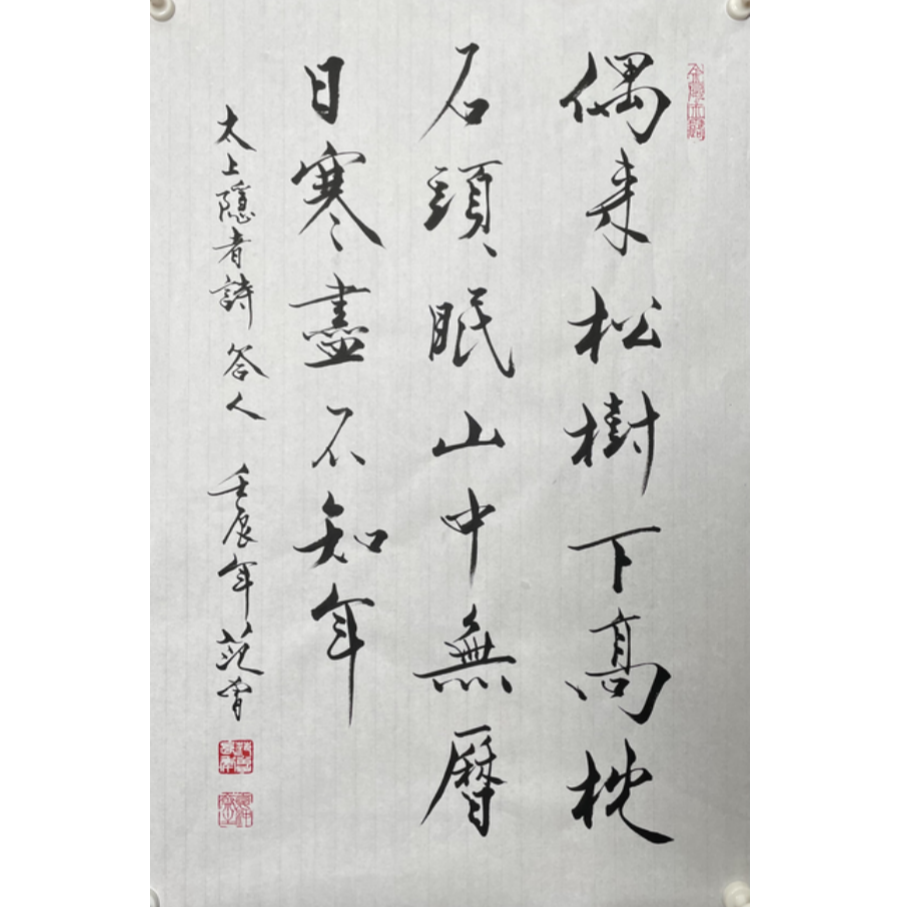 偶来松樹下高枕
石頭眠山中無曆
日寒盡不知年
太上隱者詩 答人 壬辰年 范曾